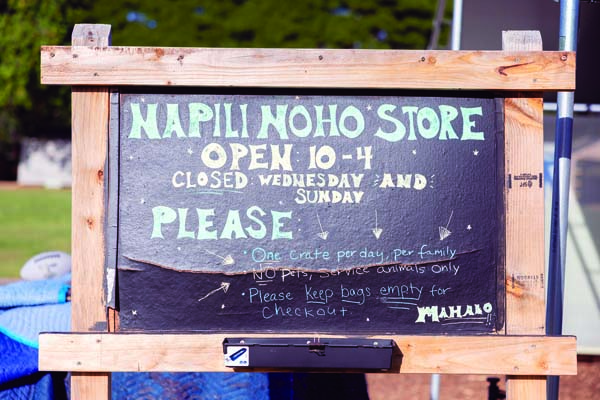 NAPILI NOHO STORE
OPEN 10-4
CLOSED WEDNESDAY AND
SUNDAY
PLEASE
• One crate per day, per family
• NO Pets, Service animals only
• Please Keep bags empty for
Checkout.
MAHALO!!